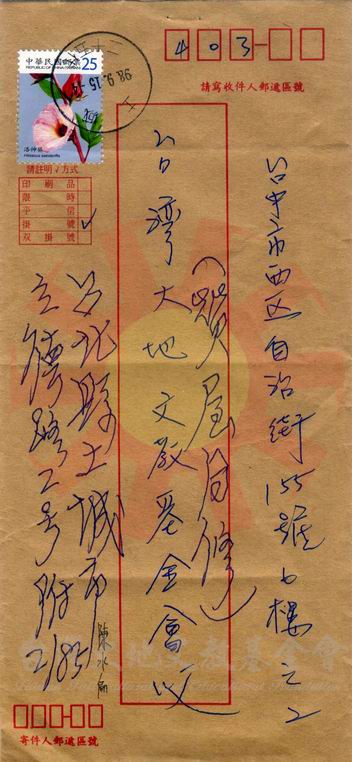 中華民國郵票 25
REPUBLIC OF CHINA (TAIWAN)
洛神葵
Hibiscus sabdariffa
98.9.15
403
請寫收件人郵遞區號
請註明✓方式
印刷品
限時
平信
掛號 ✓
双掛號
台中市西区自治街155號6樓之2
台灣大地文教基金會 收
台北縣土城市
立德路2號附2185
陳水扁
台灣大地文教基金會
寄件人郵遞區號